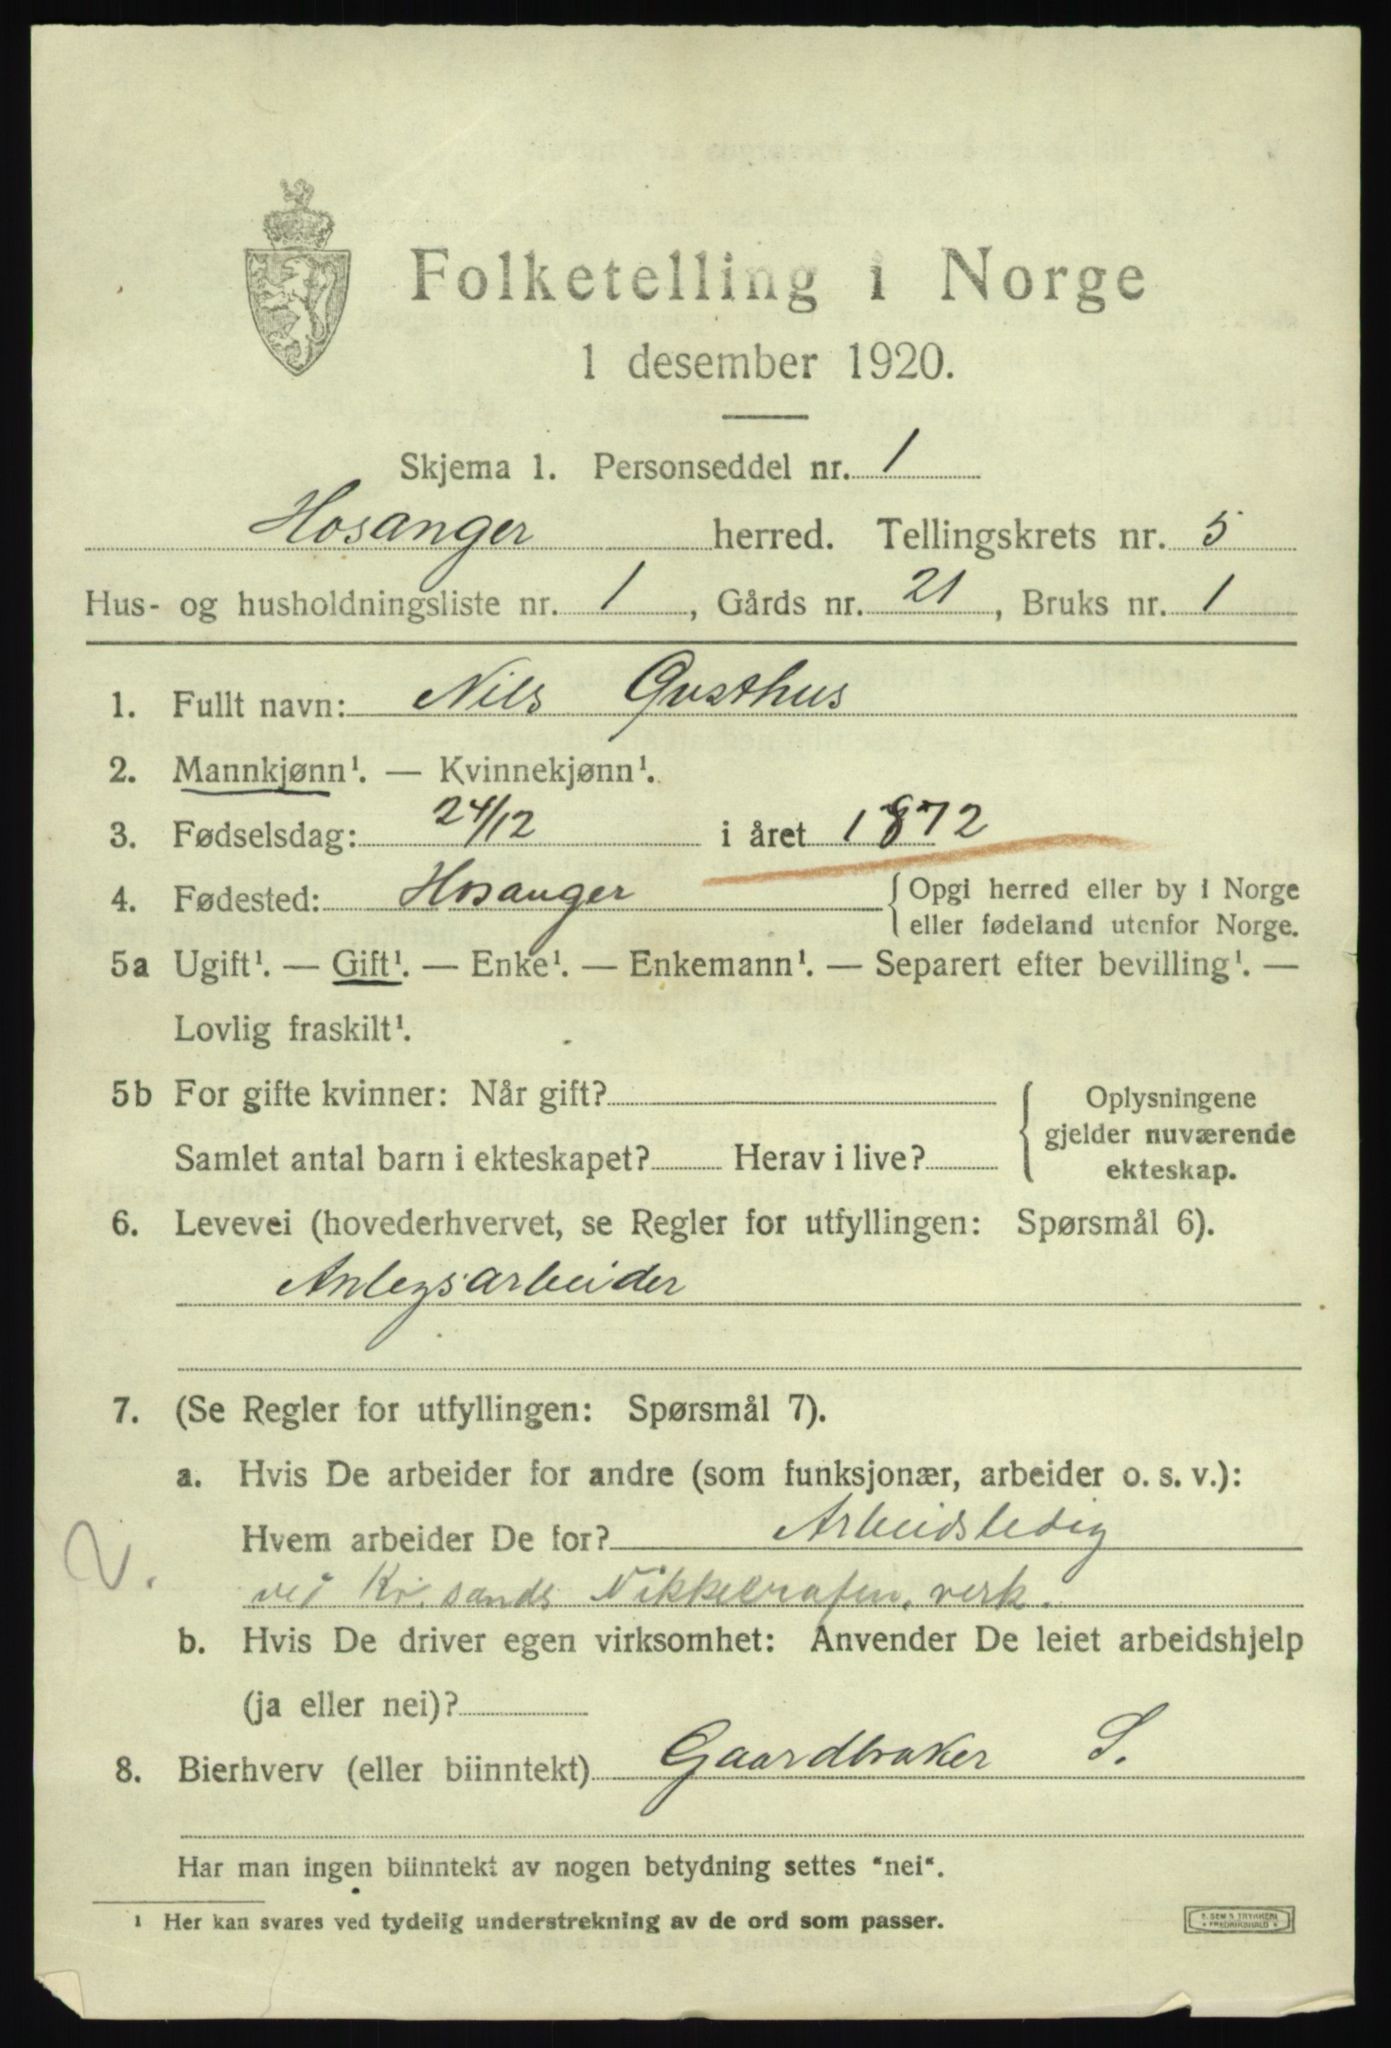 Folketelling i Norge
1 desember 1920.
Skjema 1. Personseddel nr. 1
Hosanger herred. Tellingskrets nr. 5
Hus- og husholdningsliste nr. 1, Gårds nr. 21, Bruks nr. 1
1. Fullt navn: Nils Qvsthus
2. Mannkjønn¹. — Kvinnekjønn¹.
3. Fødselsdag: 24/12 i året 1872
4. Fødested: Hosanger {Opgi herred eller by i Norge
eller fødeland utenfor Norge.
5a Ugift¹. — Gift¹. — Enke¹. — Enkemann¹. — Separert efter bevilling¹. —
Lovlig fraskilt¹.
5b For gifte kvinner: Når gift? { Oplysningene
gjelder nuværende
Samlet antal barn i ekteskapet? Herav i live? ekteskap.
6. Levevei (hovederhvervet, se Regler for utfyllingen: Spørsmål 6).
Anlegsarbeider
7. (Se Regler for utfyllingen: Spørsmål 7).
a. Hvis De arbeider for andre (som funksjonær, arbeider o. s. v.):
Hvem arbeider De for? Arbeidsledig
2. ved Kr. sands Nikkelrafin. verk.
b. Hvis De driver egen virksomhet: Anvender De leiet arbeidshjelp
(ja eller nei)?
8. Bierhverv (eller biinntekt) Gaardbruker S.
Har man ingen biinntekt av nogen betydning settes "nei".
¹ Her kan svares ved tydelig understrekning av de ord som passer.